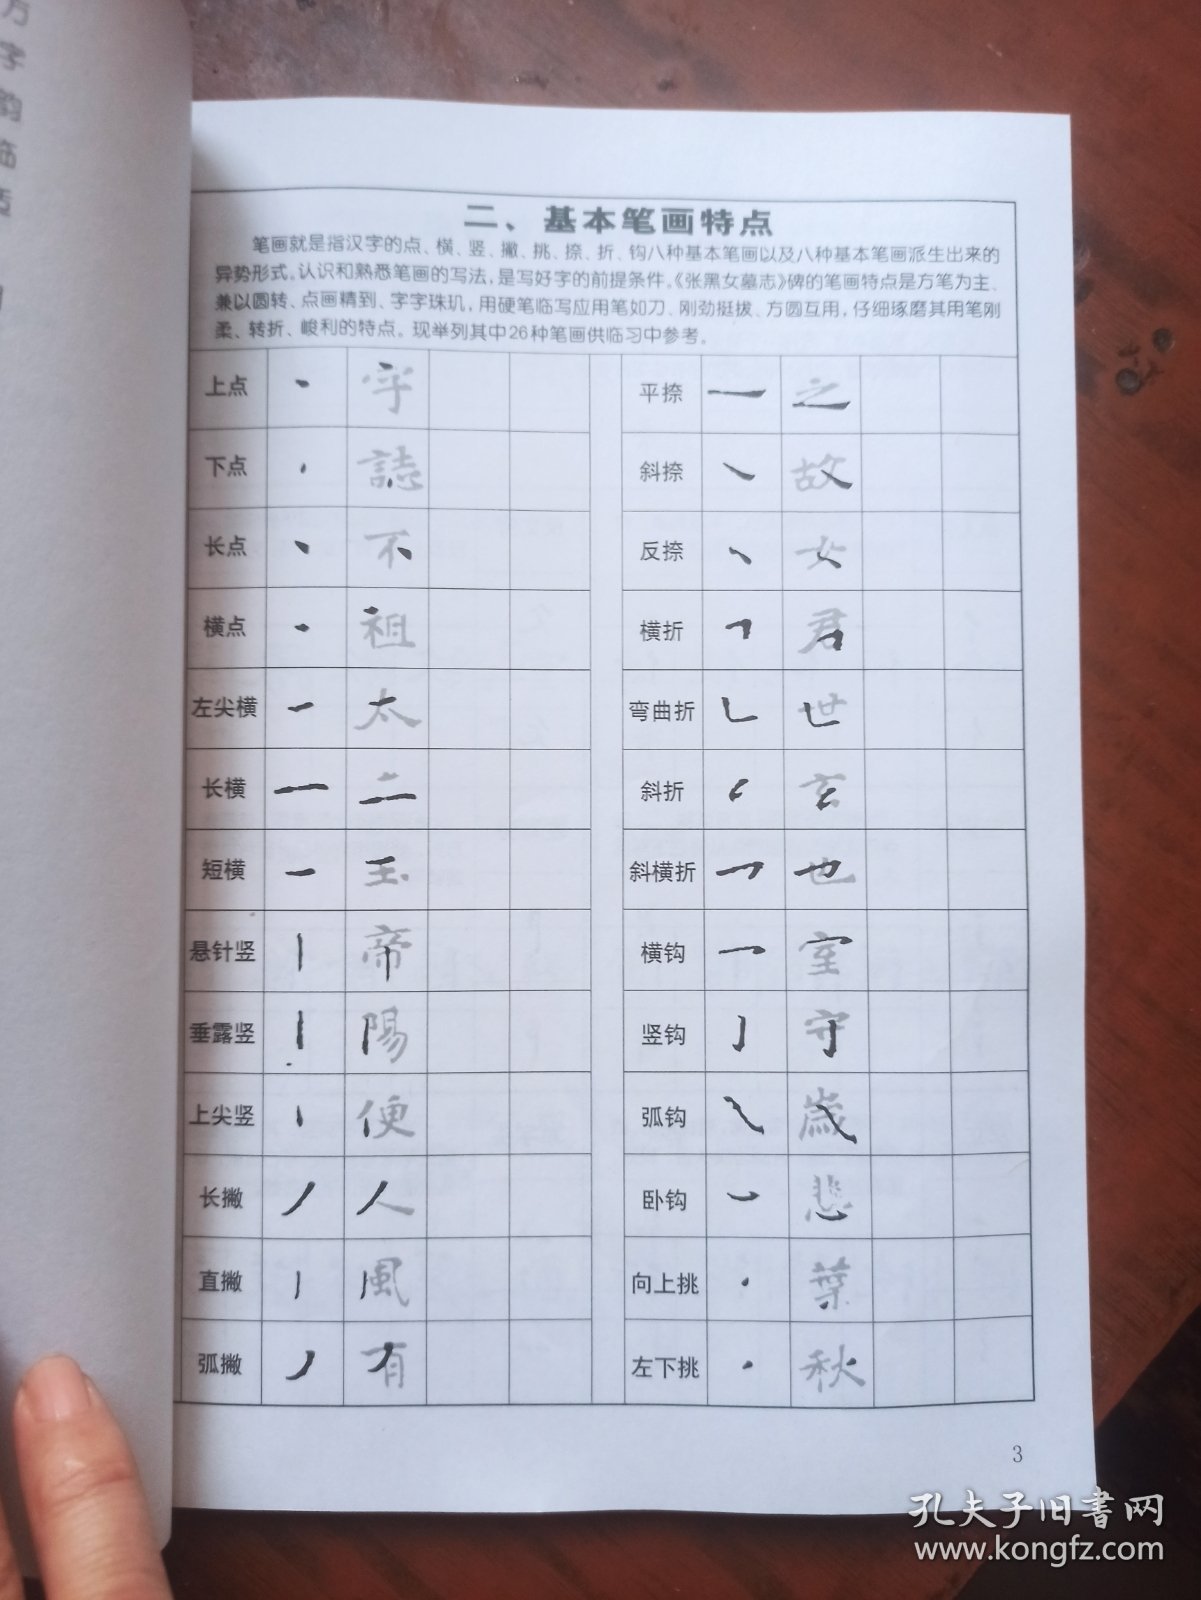 方
字
韵
临
二、基本笔画特点
笔画就是指汉字的点、横、竖、撇、挑、捺、折、钩八种基本笔画以及八种基本笔画派生出来的
异势形式。认识和熟悉笔画的写法，是写好字的前提条件。《张黑女墓志》碑的笔画特点是方笔为主、
兼以圆转、点画精到、字字珠玑，用硬笔临写应用笔如刀、刚劲挺拔、方圆互用，仔细琢磨其用笔刚
柔、转折、峻利的特点。现举列其中26种笔画供临习中参考。
上点 字
下点 誌
长点 不
横点 祖
左尖横 太
长横 二
短横 玉
悬针竖 帝
垂露竖 陽
上尖竖 便
长撇 人
直撇 風
弧撇 有
平捺 之
斜捺 故
反捺 女
横折 君
弯曲折 世
斜折 玄
斜横折 也
横钩 室
竖钩 守
弧钩 歲
卧钩 悲
向上挑 葉
左下挑 秋
3
孔夫子旧书网
www.kongfz.com